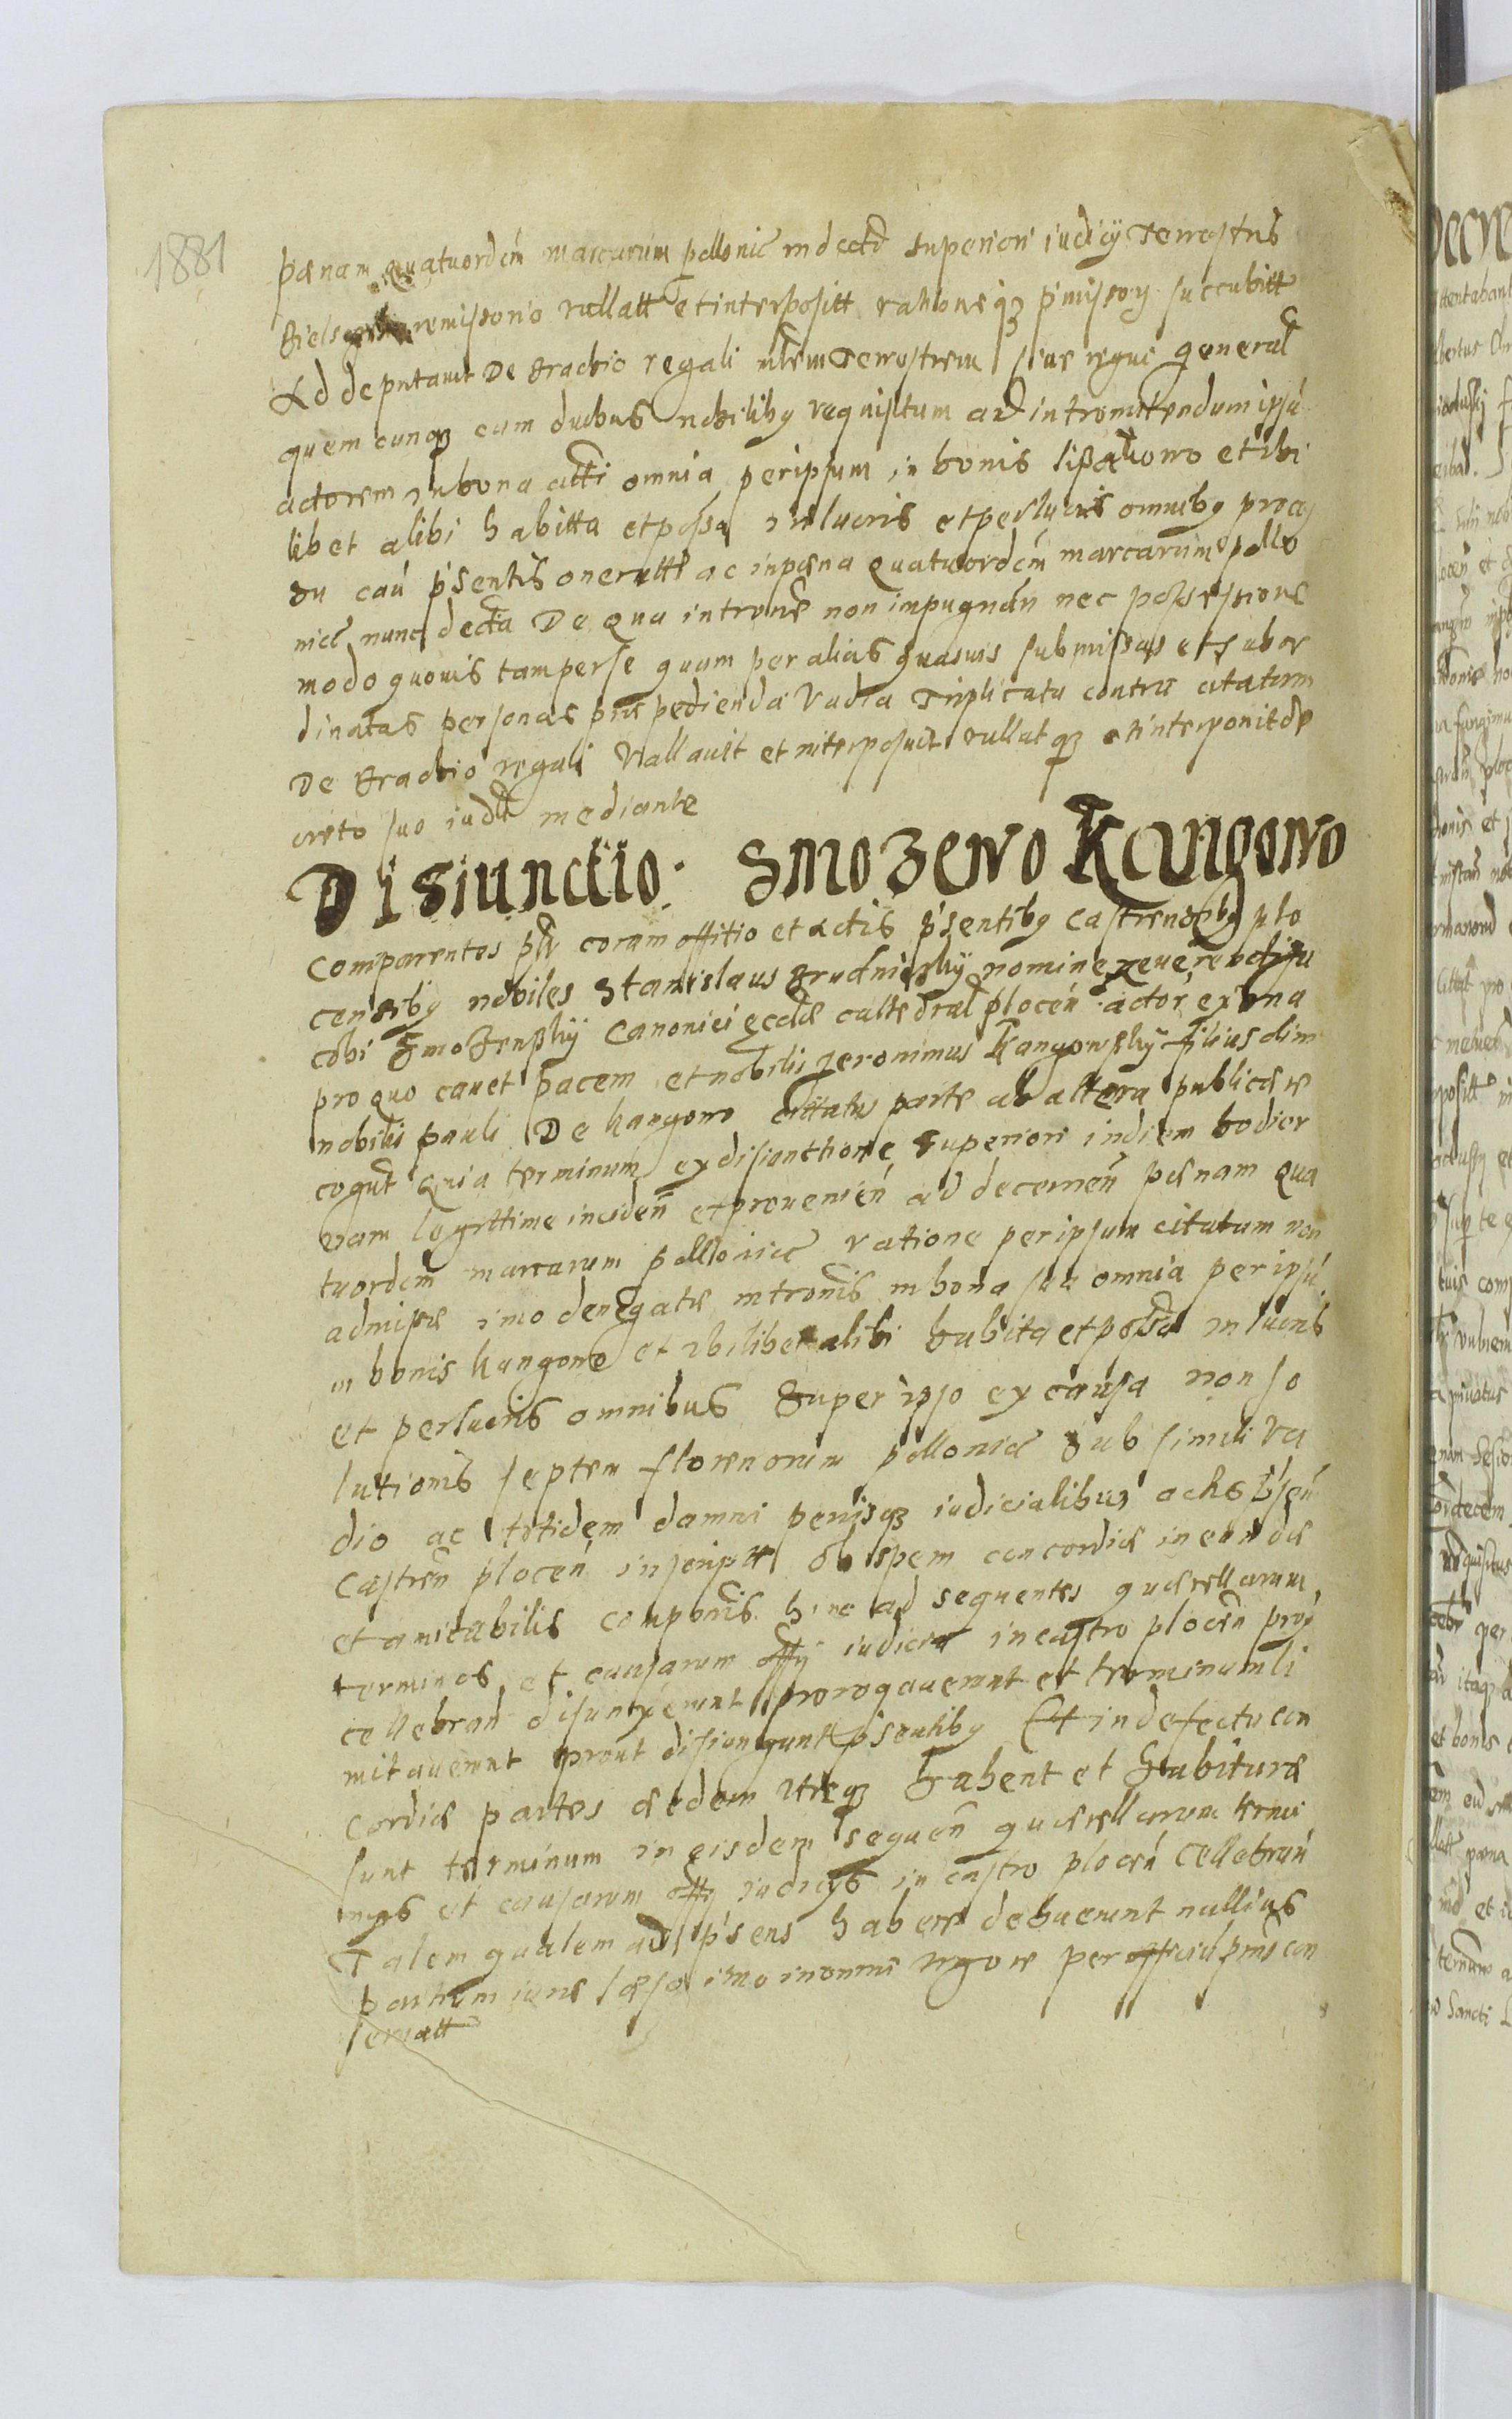 1881
pænam quatuordcim marcarum pollonic in decto superiori iudicij Terrestris
Bielscen remissorio vallatt et interpositt rationeqz p'missory succubitt
Ad deputauit De Brachio regali mlem Terrestrem siue regni general
quem cunqz cum duobus nobilibq requisitum ad intromittendum ipsu
actorem in bona citti omnia per ipsum in bonis et ibi
libet alibi habitta et possa in lucris et perlucris omnibq proces
su cau p'sentis oneratte ac in pæna quatuordcim marcarum pollo
nice nunc decta De qua introne non impugnan nec possessione
modo quouis tam per se quam per alias quasuis submissas et subor
dinatas personas præpedienda Vadia Triplicata contra citatum
De Brachio regali Vallauit et interposuit vallatqz et interponit de
creto suo iudt mediante
Disiunctio: Smozewo Kangowo
Comparentes plr coram offitio et Actis p'sentibq castrensibq plo
censibq nobiles Stanislaus Brudnicskÿ nomine reuerendi Ja
cobi Smozenskÿ Canonici ecclæ cattedral plocen actor ex una
pro quo cauet pacem et nobilis Jeronimus Kangowskÿ filius olim
nobilis pauli De Kangowo cittatus parte ab altera publice re
cognt Quia terminum ex disiunctione superiori in diem hodier
nam legittime inciden et prouenien ad decernen pænam qua
tuordcim marcarum pollonice ratione per ipsum citatum non
admissæ imo denegatæ intronis in bona sua omnia per ipsu
in bonis Kangowo et ibilibet alibi habita et possa in lucris
et perlucris omnibus Super ipso ex causa non so
lutionis septem florenorum pollonice Sub simili Va
dio ac totidem damni penisqz iudicialibus actis p'sen
Castren plocen inscriptt ob spem concordiæ ineundæ
et amicabilis componis hinc ad sequentes quærellarum
terminos et causarum offy iudicia in castro plocen prox
cellebran disiunxerunt prorogauerunt et terminum li
mitauerunt prout disiungunt p'sentibq Et in defectu con
cordiæ partes eædem vtræqz habent et habituræ
sunt terminum in eisdem sequen quærellarum termi
nis et causarum offy iudicys in castro plocen Cellebran
Talem qualem ad p'sens habere debuerunt nullius
partium iure læso imo in omni rigore per officiu p'ns con
seruatt